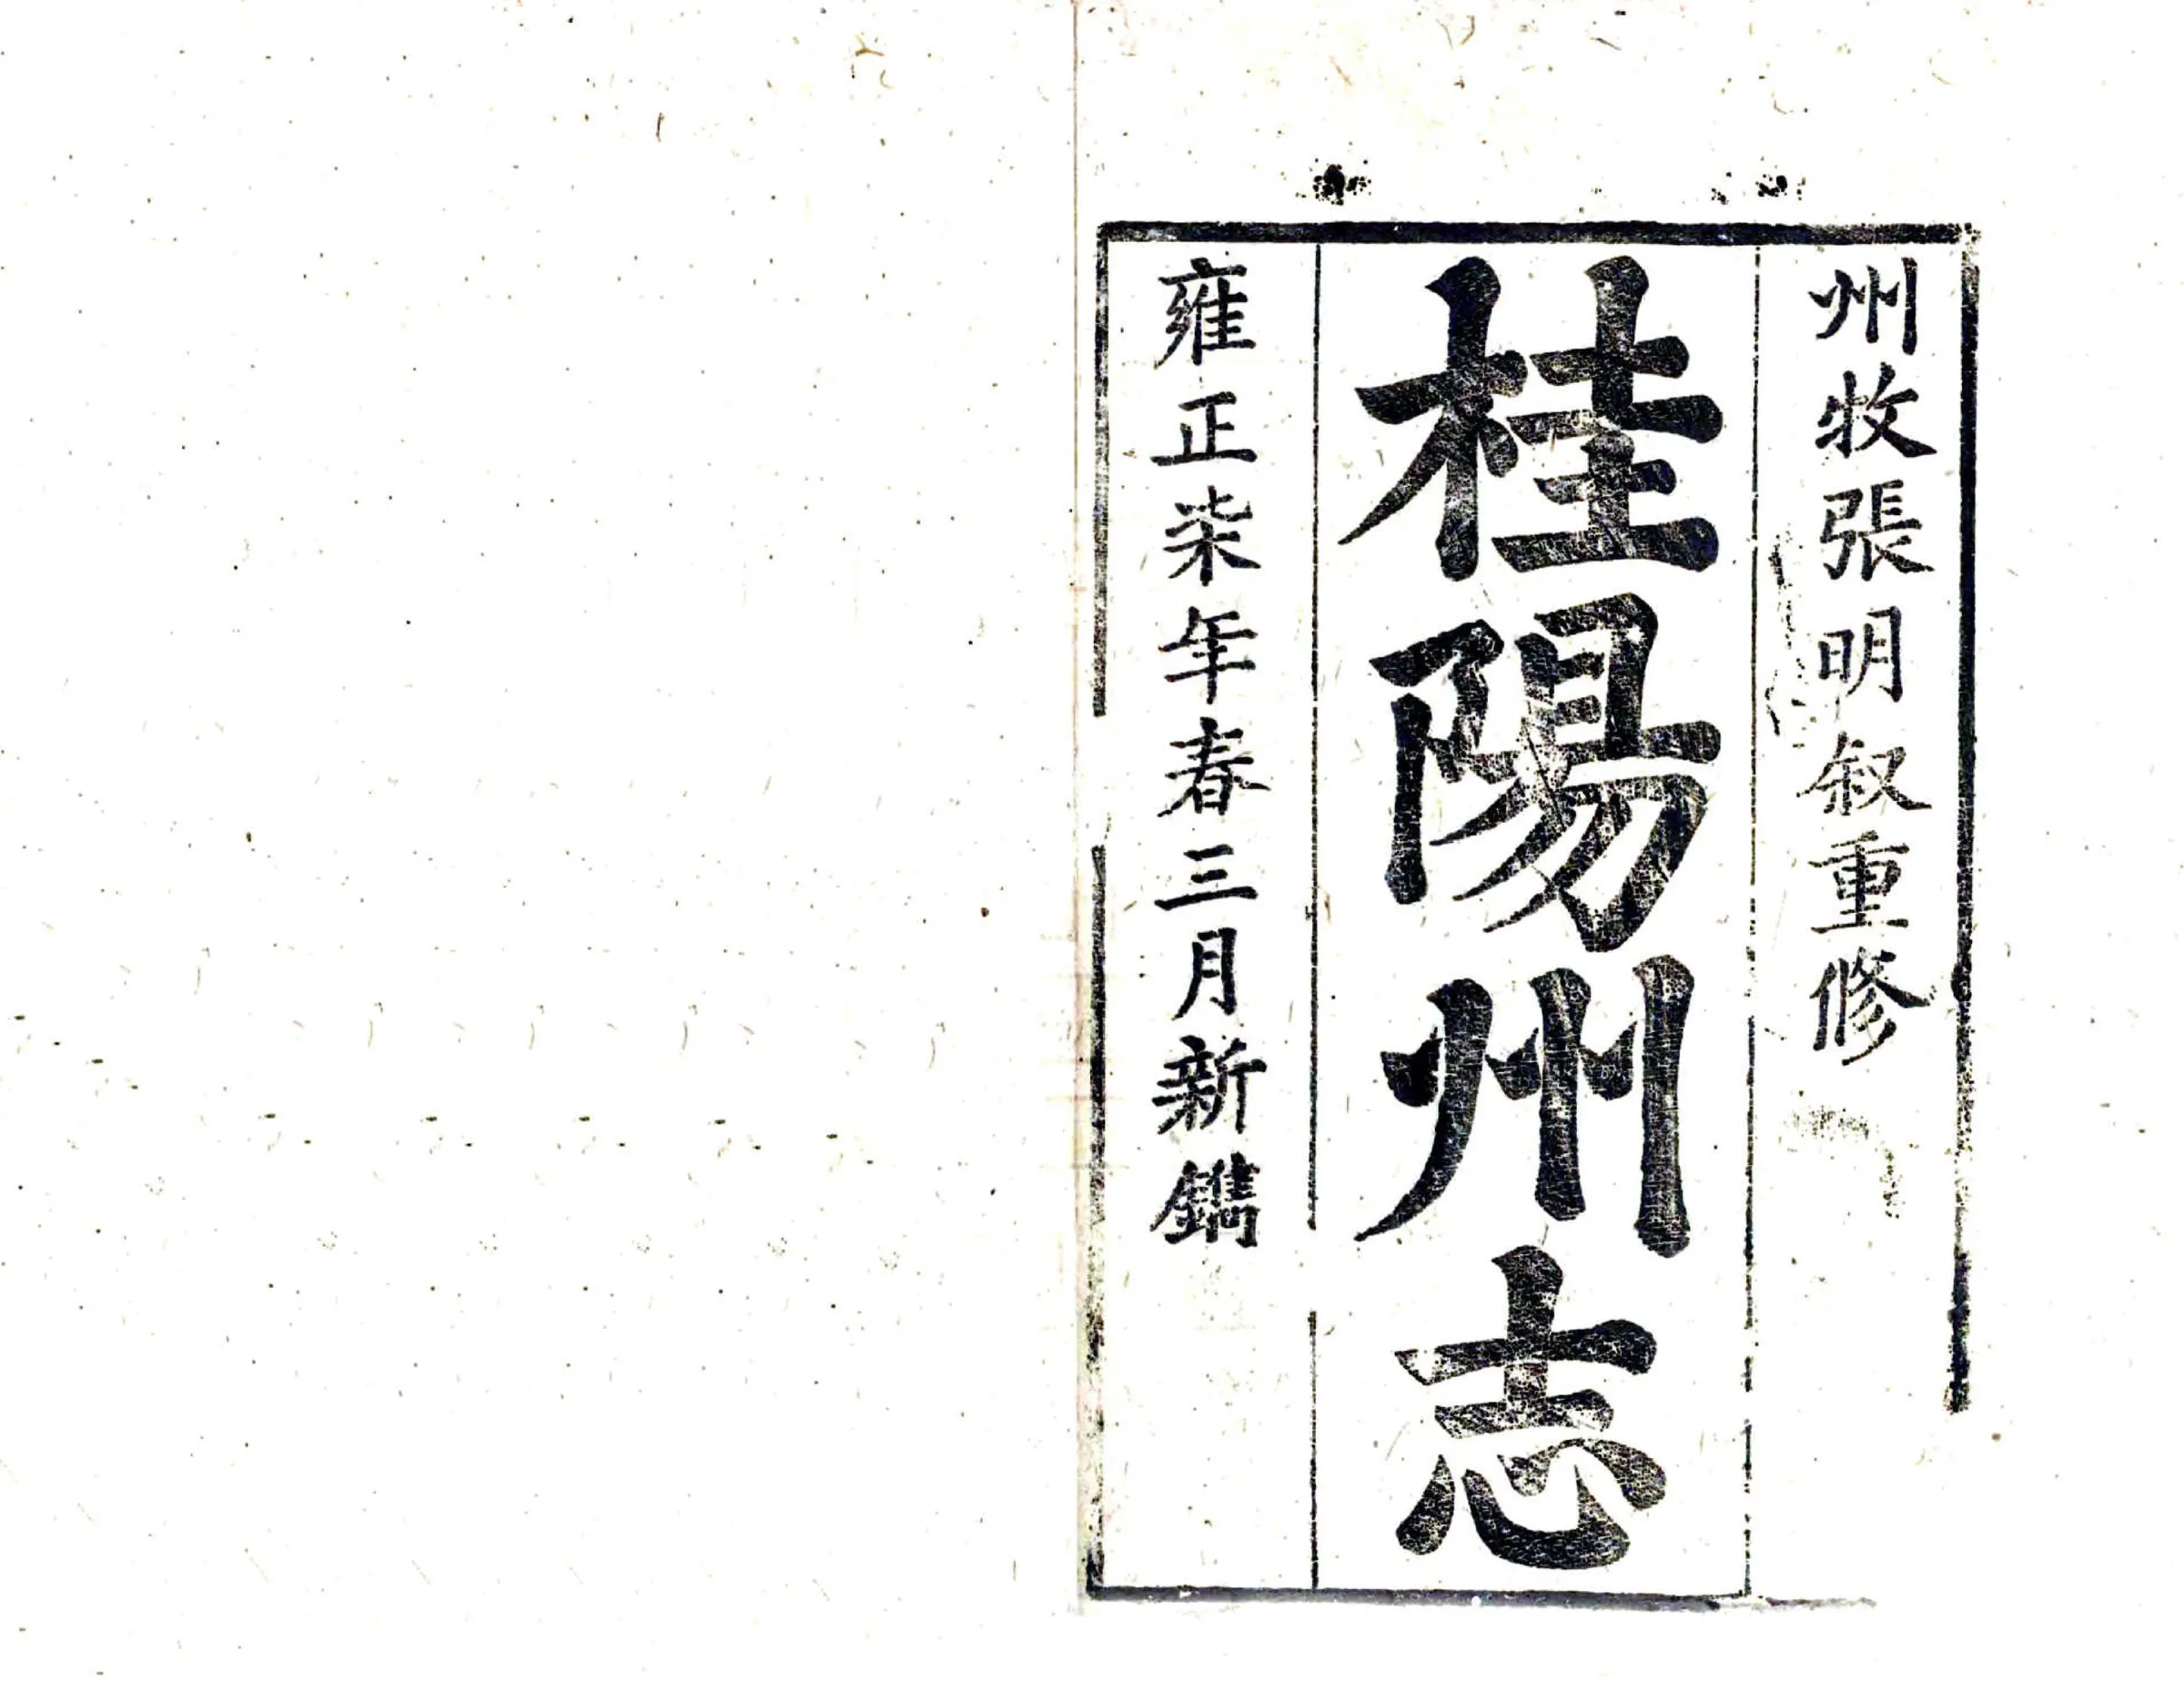 州牧張明叙重修
桂陽州志
雍正柒年春三月新鐫